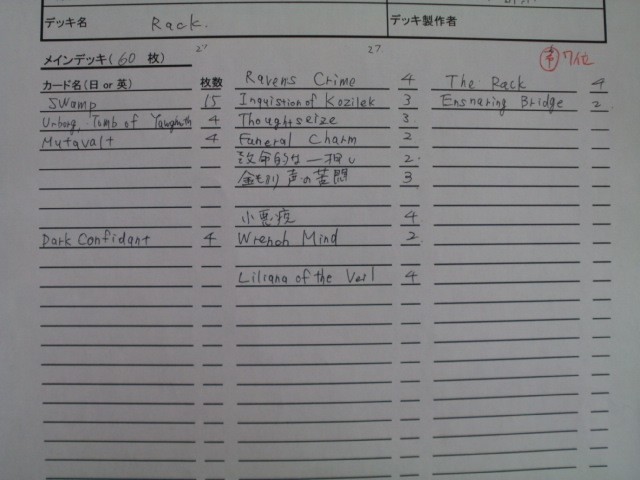 デッキ名 Rack. デッキ製作者
27 27
メインデッキ(60 枚)
カード名(日 or 英) 枚数
Swamp 15
Urborg, Tomb of Yawgmoth 4
Mutavalt 4
Dark Confidant 4
Ravens Crime 4
Inquistion of Kozilek 3
Thoughtseize 3
Funeral Charm 2
致命的な一押し 2.
金切り声の苦悶 3
小悪疫 4
Wrench Mind 2
Liliana of the Veil 4
7位
The Rack 4
Ensnaring Bridge 2.